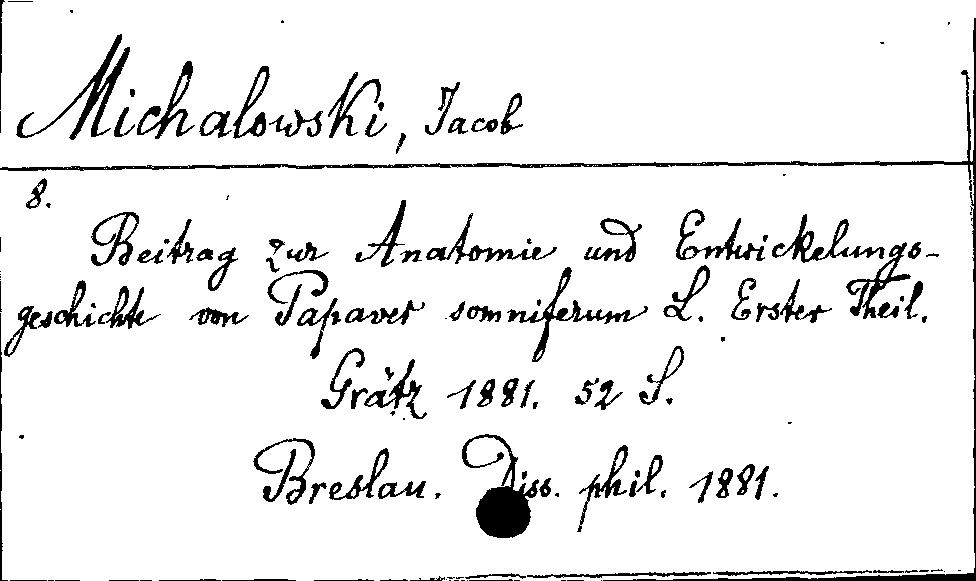 Michalowski, Jacob
8.
Beitrag zur Anatomie und Entwickelungs-
geschichte von Papaver somniferum L. Erster Theil.
Grätz 1881. 52 S.
Breslau. Diss. phil. 1881.